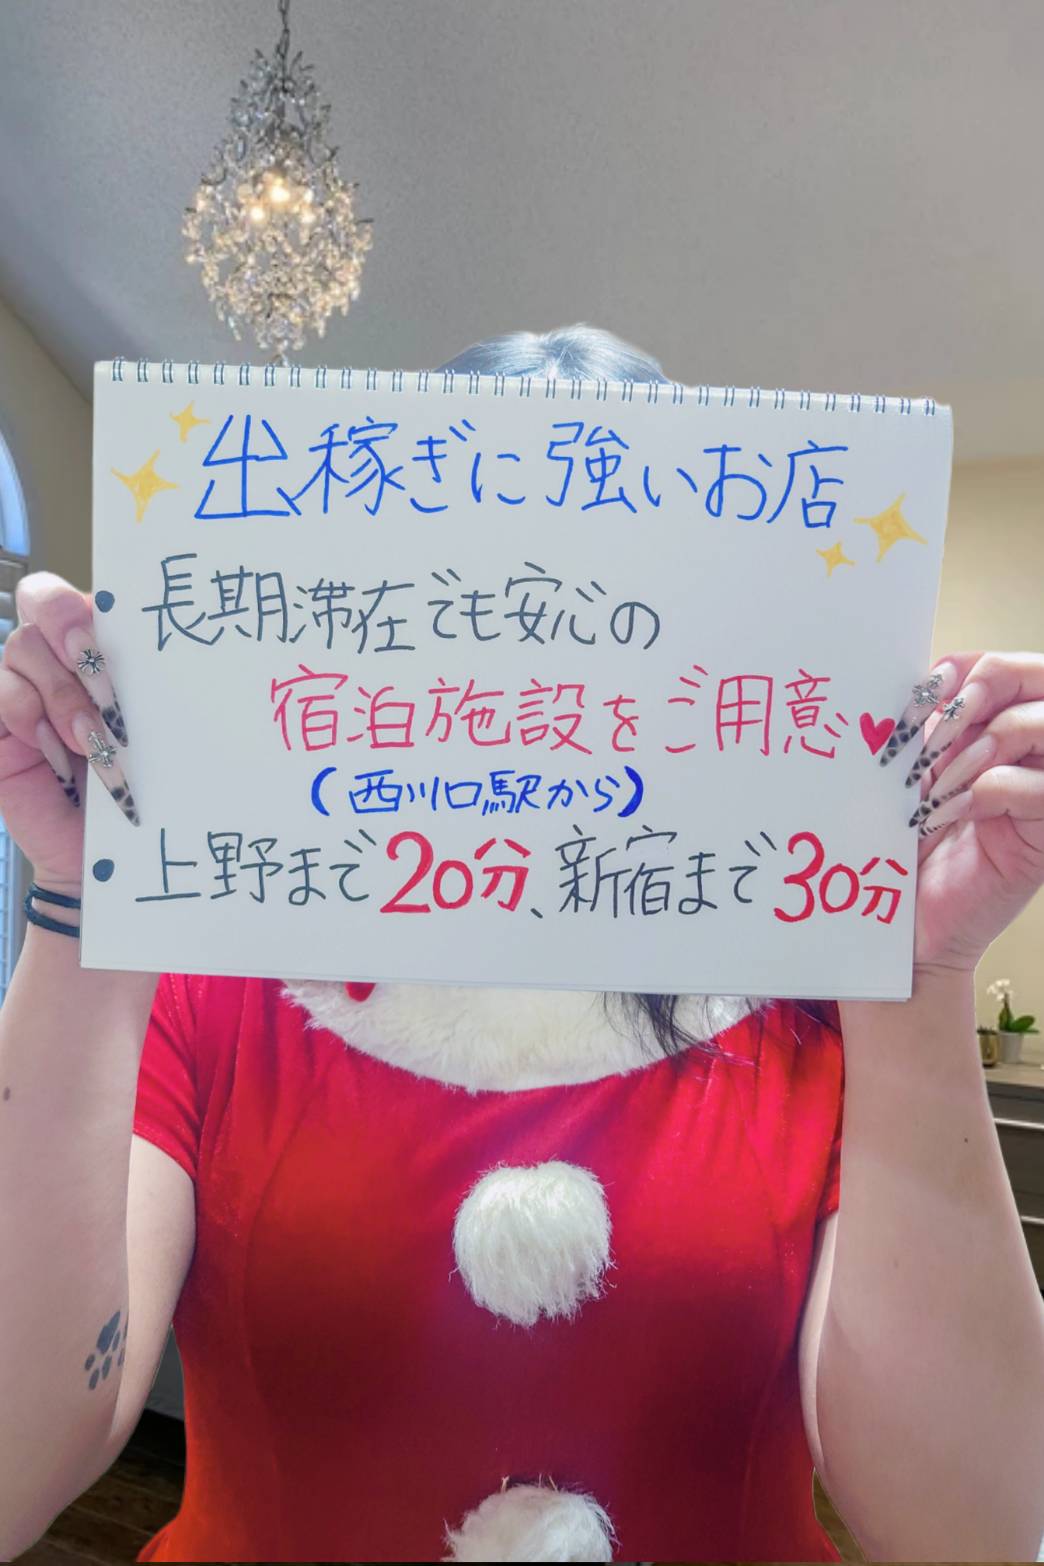 出稼ぎに強いお店
● 長期滞在でも安心の
宿泊施設をご用意♥
(西川口駅から)
● 上野まで20分、新宿まで30分